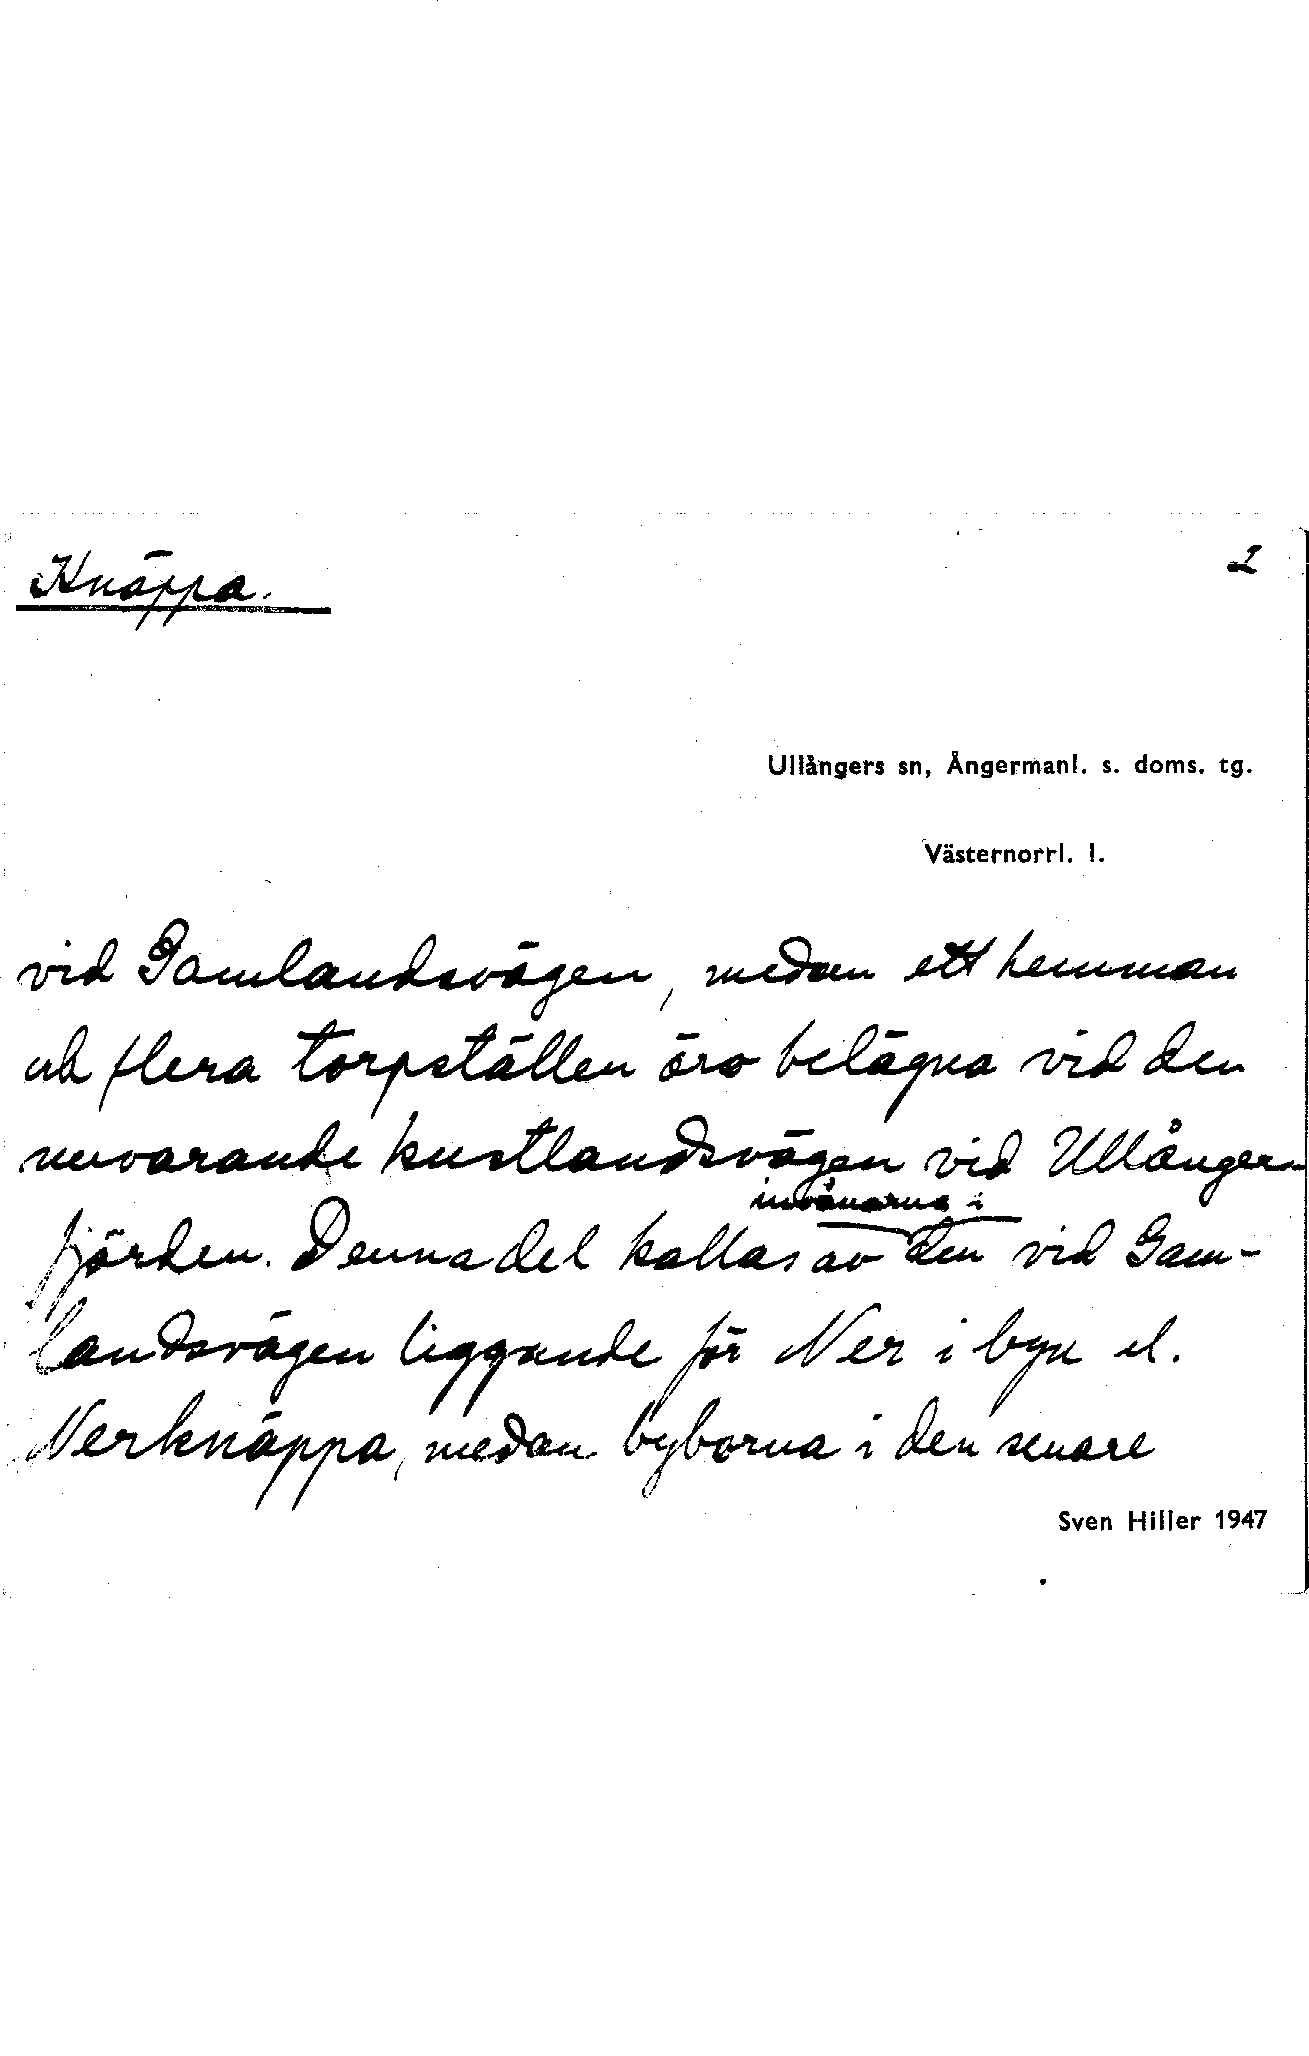 Knäppa.
2
Ullångers sn, Ångermanl. s. doms. tg.
Västernorrl. l.
vid Gamlandsvägen, medan ett hemman
och flera torpställen äro belägna vid den
nuvarande kustlandsvägen vid Ullångers-
invånarna i
fjärden. Denna del kallas av den vid Gam-
landsvägen liggande för Ner i byn el.
Nerknäppa, medan byborna i den senare
Sven Hiller 1947